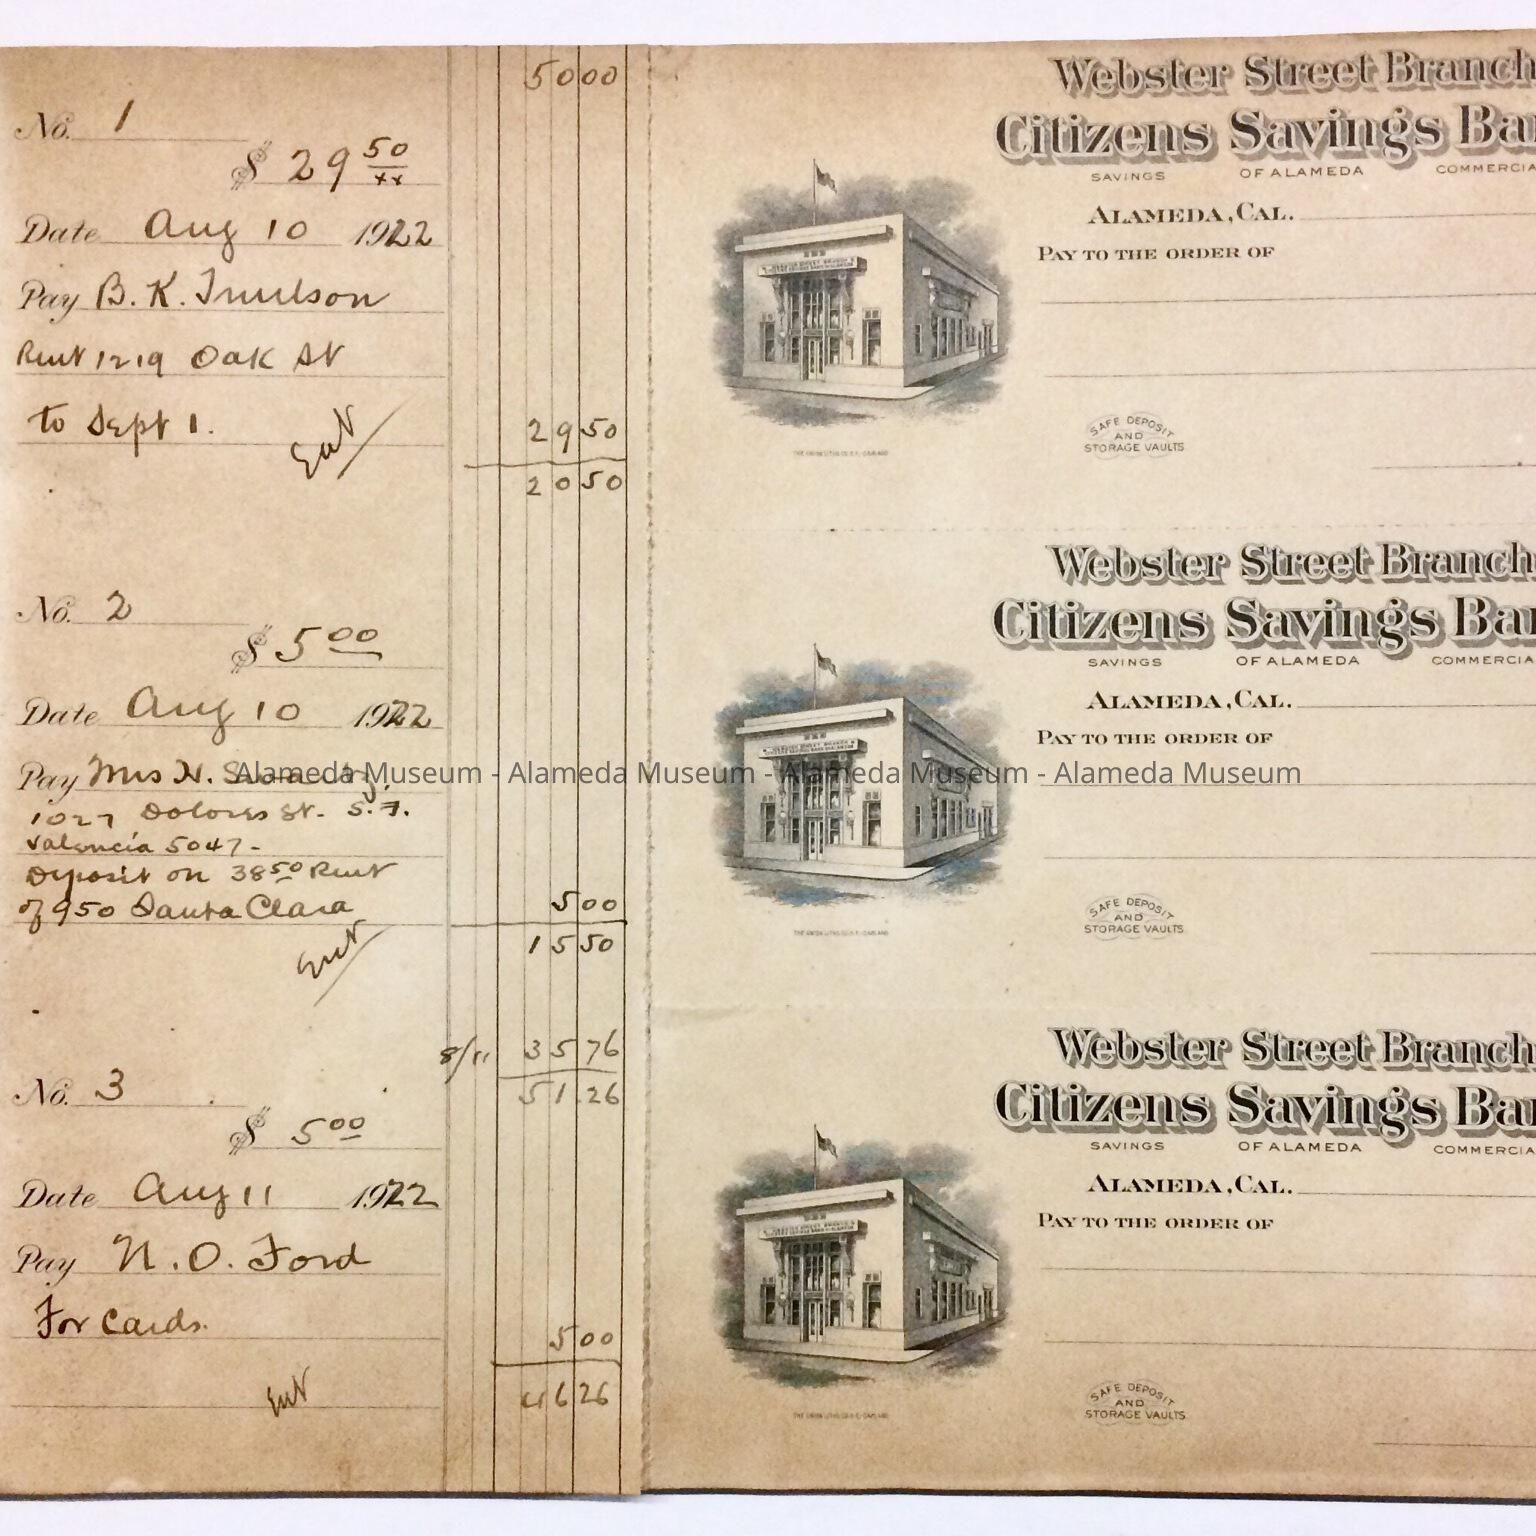 5000
No. 1
$ 29 50/xx
Date Aug 10 1922
Pay B. K.
Rent 1219 Oak St
to Sept 1.
Ent
29 50
20 50
No. 2
$ 5 00
Date Aug 10 1922
Pay Mrs H.
1027 Dolores St. S.F.
Valencia 5047-
Deposit on 38 50 Rent
of 950 Santa Clara
Ent
5 00
15 50
8/11 35 76
51.26
No. 3
$ 5 00
Date Aug 11 1922
Pay N. O. Ford
For Cards.
Ent
5 00
46 26
Webster Street Branch
Citizens Savings Ba
SAVINGS OF ALAMEDA COMMERCIA
ALAMEDA, CAL.
PAY TO THE ORDER OF
WEBSTER STREET BRANCH
CITIZENS SAVINGS BANK OF ALAMEDA
SAFE DEPOSIT
AND
STORAGE VAULTS
Webster Street Branch
Citizens Savings Ba
SAVINGS OF ALAMEDA COMMERCIA
ALAMEDA, CAL.
PAY TO THE ORDER OF
WEBSTER STREET BRANCH
CITIZENS SAVINGS BANK OF ALAMEDA
Alameda Museum - Alameda Museum - Alameda Museum - Alameda Museum
SAFE DEPOSIT
AND
STORAGE VAULTS
Webster Street Branch
Citizens Savings Ba
SAVINGS OF ALAMEDA COMMERCIA
ALAMEDA, CAL.
PAY TO THE ORDER OF
WEBSTER STREET BRANCH
CITIZENS SAVINGS BANK OF ALAMEDA
SAFE DEPOSIT
AND
STORAGE VAULTS